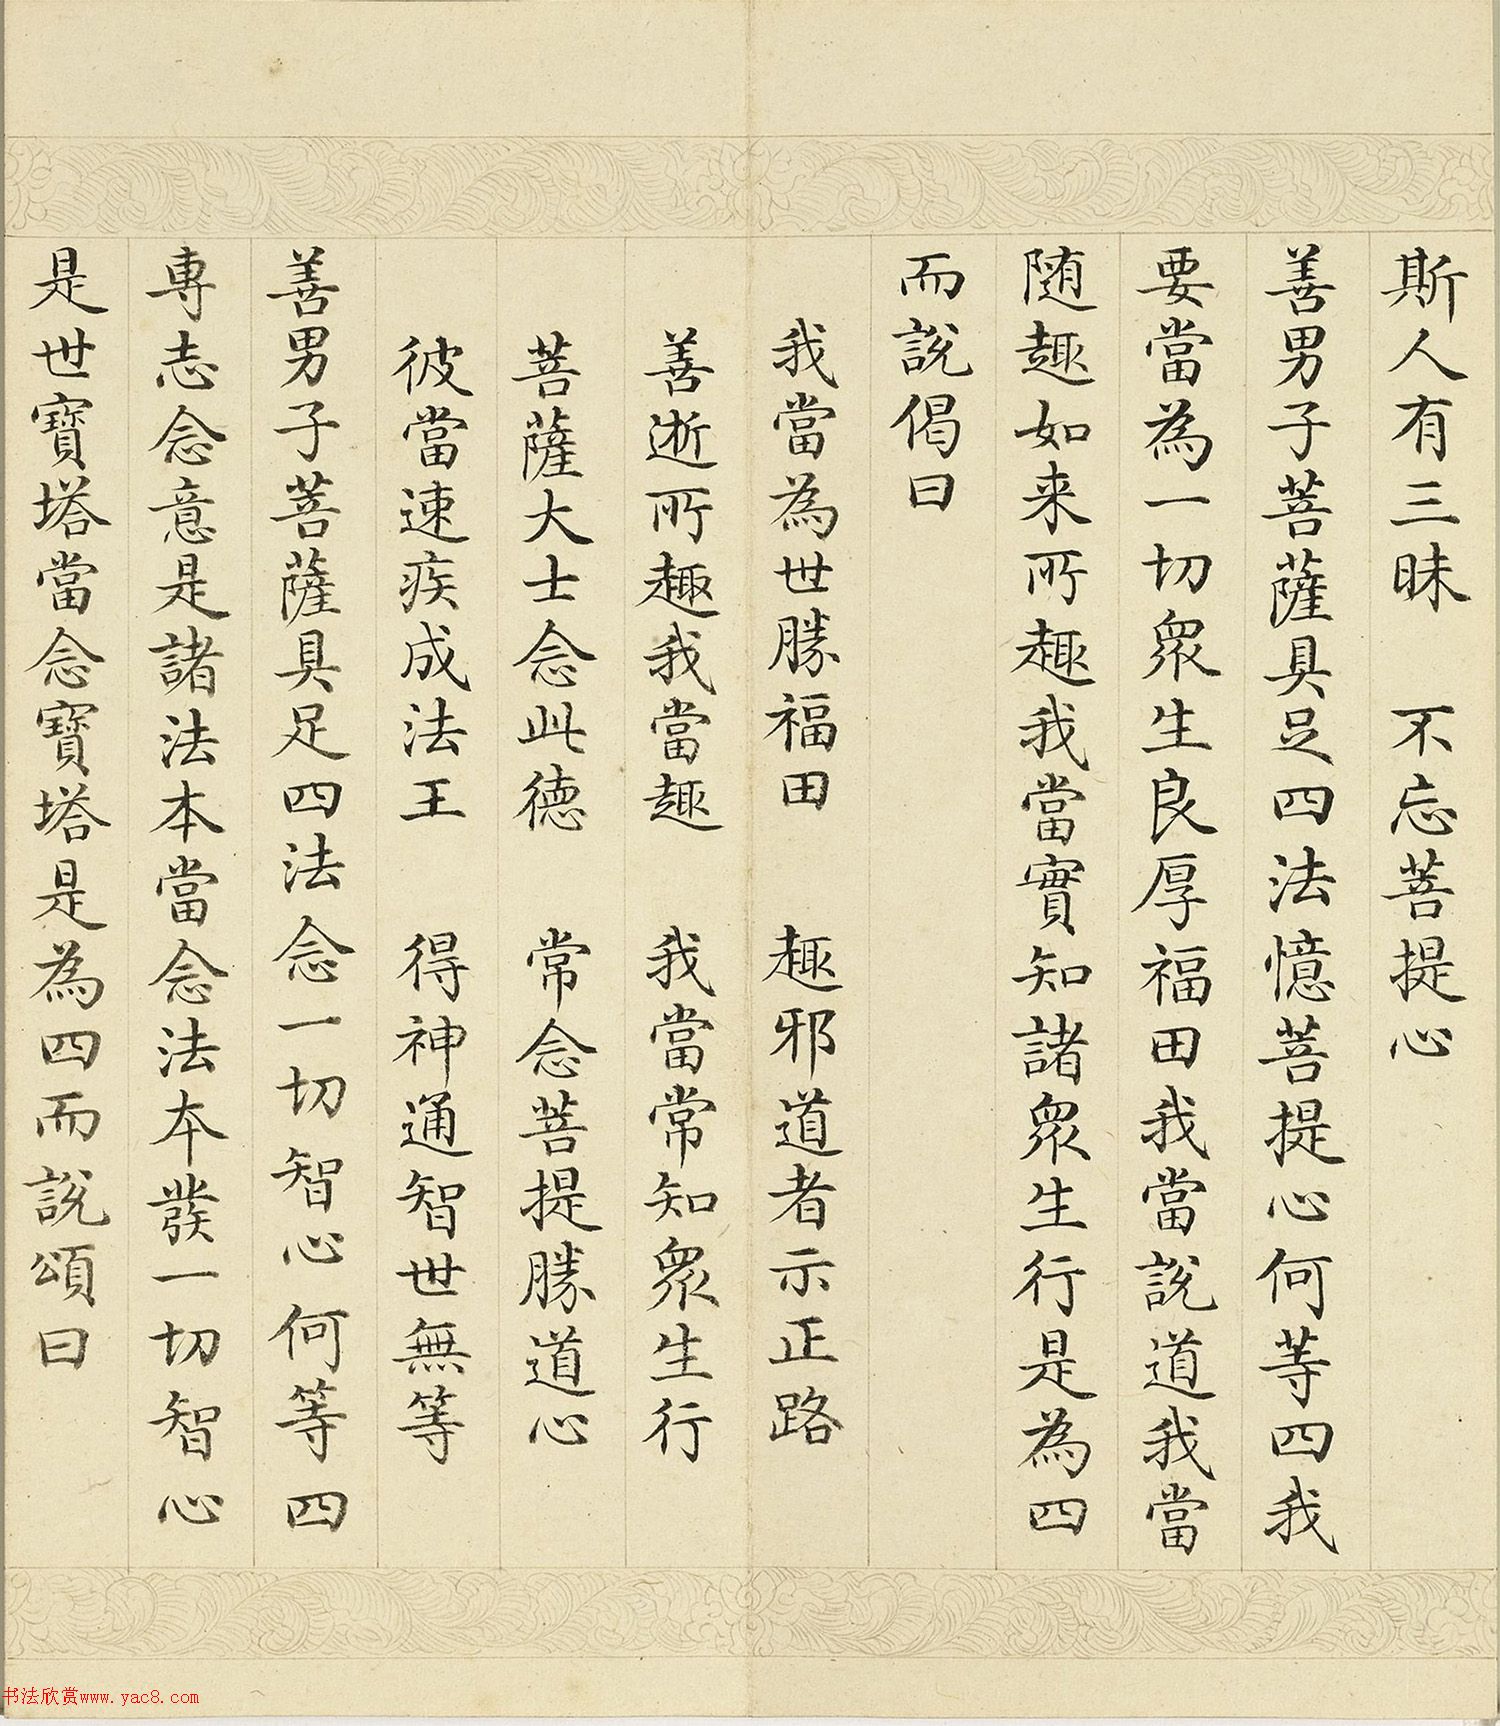 斯人有三昧　不忘菩提心
善男子菩薩具足四法憶菩提心何等四我
要當為一切眾生良厚福田我當說道我當
随趣如来所趣我當實知諸眾生行是為四
而說偈曰
我當為世勝福田　趣邪道者示正路
善逝所趣我當趣　我當常知眾生行
菩薩大士念此德　常念菩提勝道心
彼當速疾成法王　得神通智世無等
善男子菩薩具足四法念一切智心何等四
專志念意是諸法本當念法本發一切智心
是世寶塔當念寶塔是為四而說頌曰
书法欣赏www.yac8.com